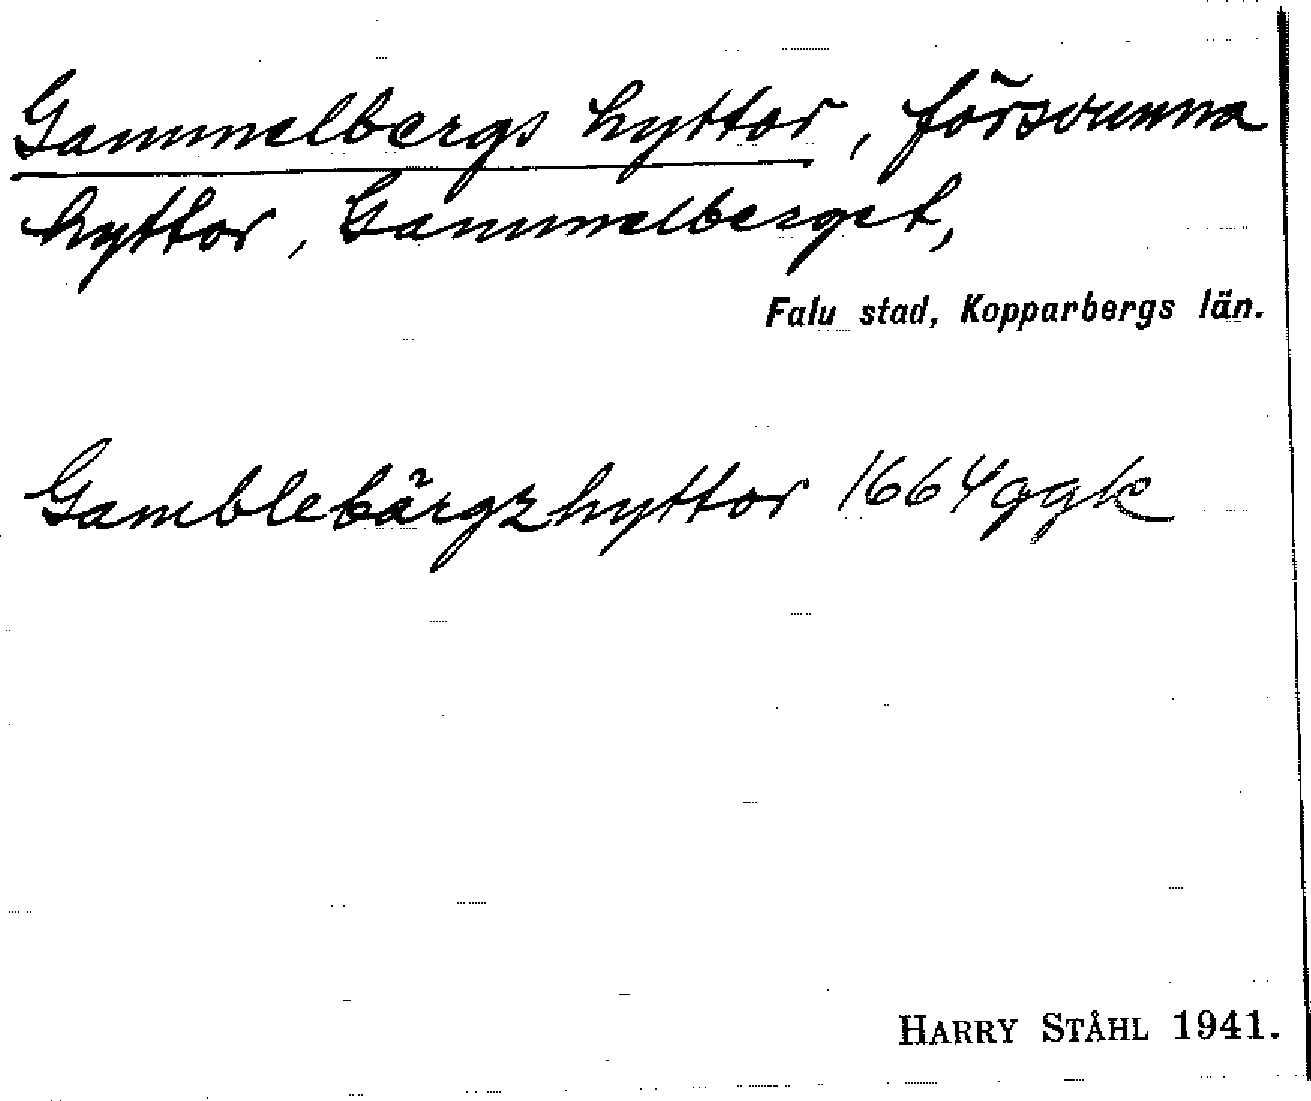 Gammelbergs hyttor, försvunna
hyttor, Gammelberget,
Falu stad, Kopparbergs län.
Gamblebärgzhyttor 1664 ggk
HARRY STÅHL 1941.